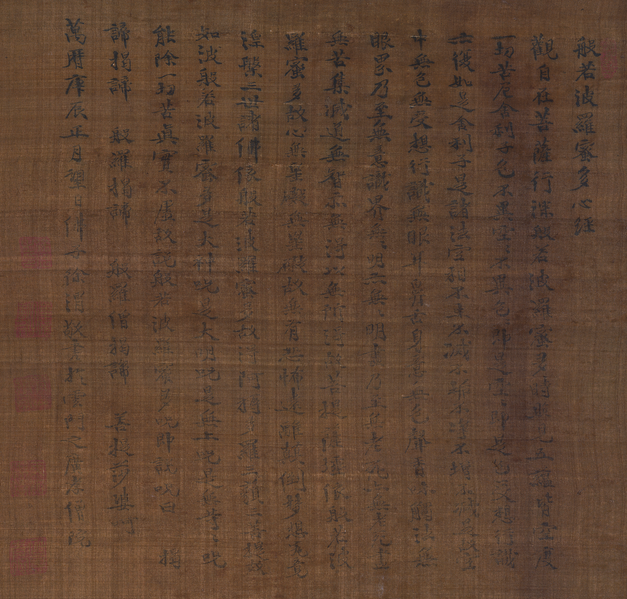 般若波羅蜜多心經
觀自在菩薩行深般若波羅蜜多時照見五蘊皆空度
一切苦厄舍利子色不異空不異色即是空即是色受想行識
亦復如是舍利子是諸法空相不生不滅不垢不淨不增不減是故空
中無色無受想行識無眼耳鼻舌身意無色聲香味觸法無
眼界乃至無意識界無無明亦無無明盡乃至無老死亦無老死盡
無苦集滅道無智亦無得以無所得故菩提薩埵依般若波
羅蜜多故心無罣礙無罣礙故無有恐怖遠離顛倒夢想究竟
涅槃三世諸佛依般若波羅蜜多故得阿耨多羅三藐三菩提故
知般若波羅蜜多是大神咒是大明咒是無上咒是無等等咒
能除一切苦真實不虛故說般若波羅蜜多咒即說咒曰 揭
諦揭諦 般羅揭諦 般羅僧揭諦 菩提薩婆訶
萬曆庚辰正月望日佛下徐渭敬書於之廣孝僧院